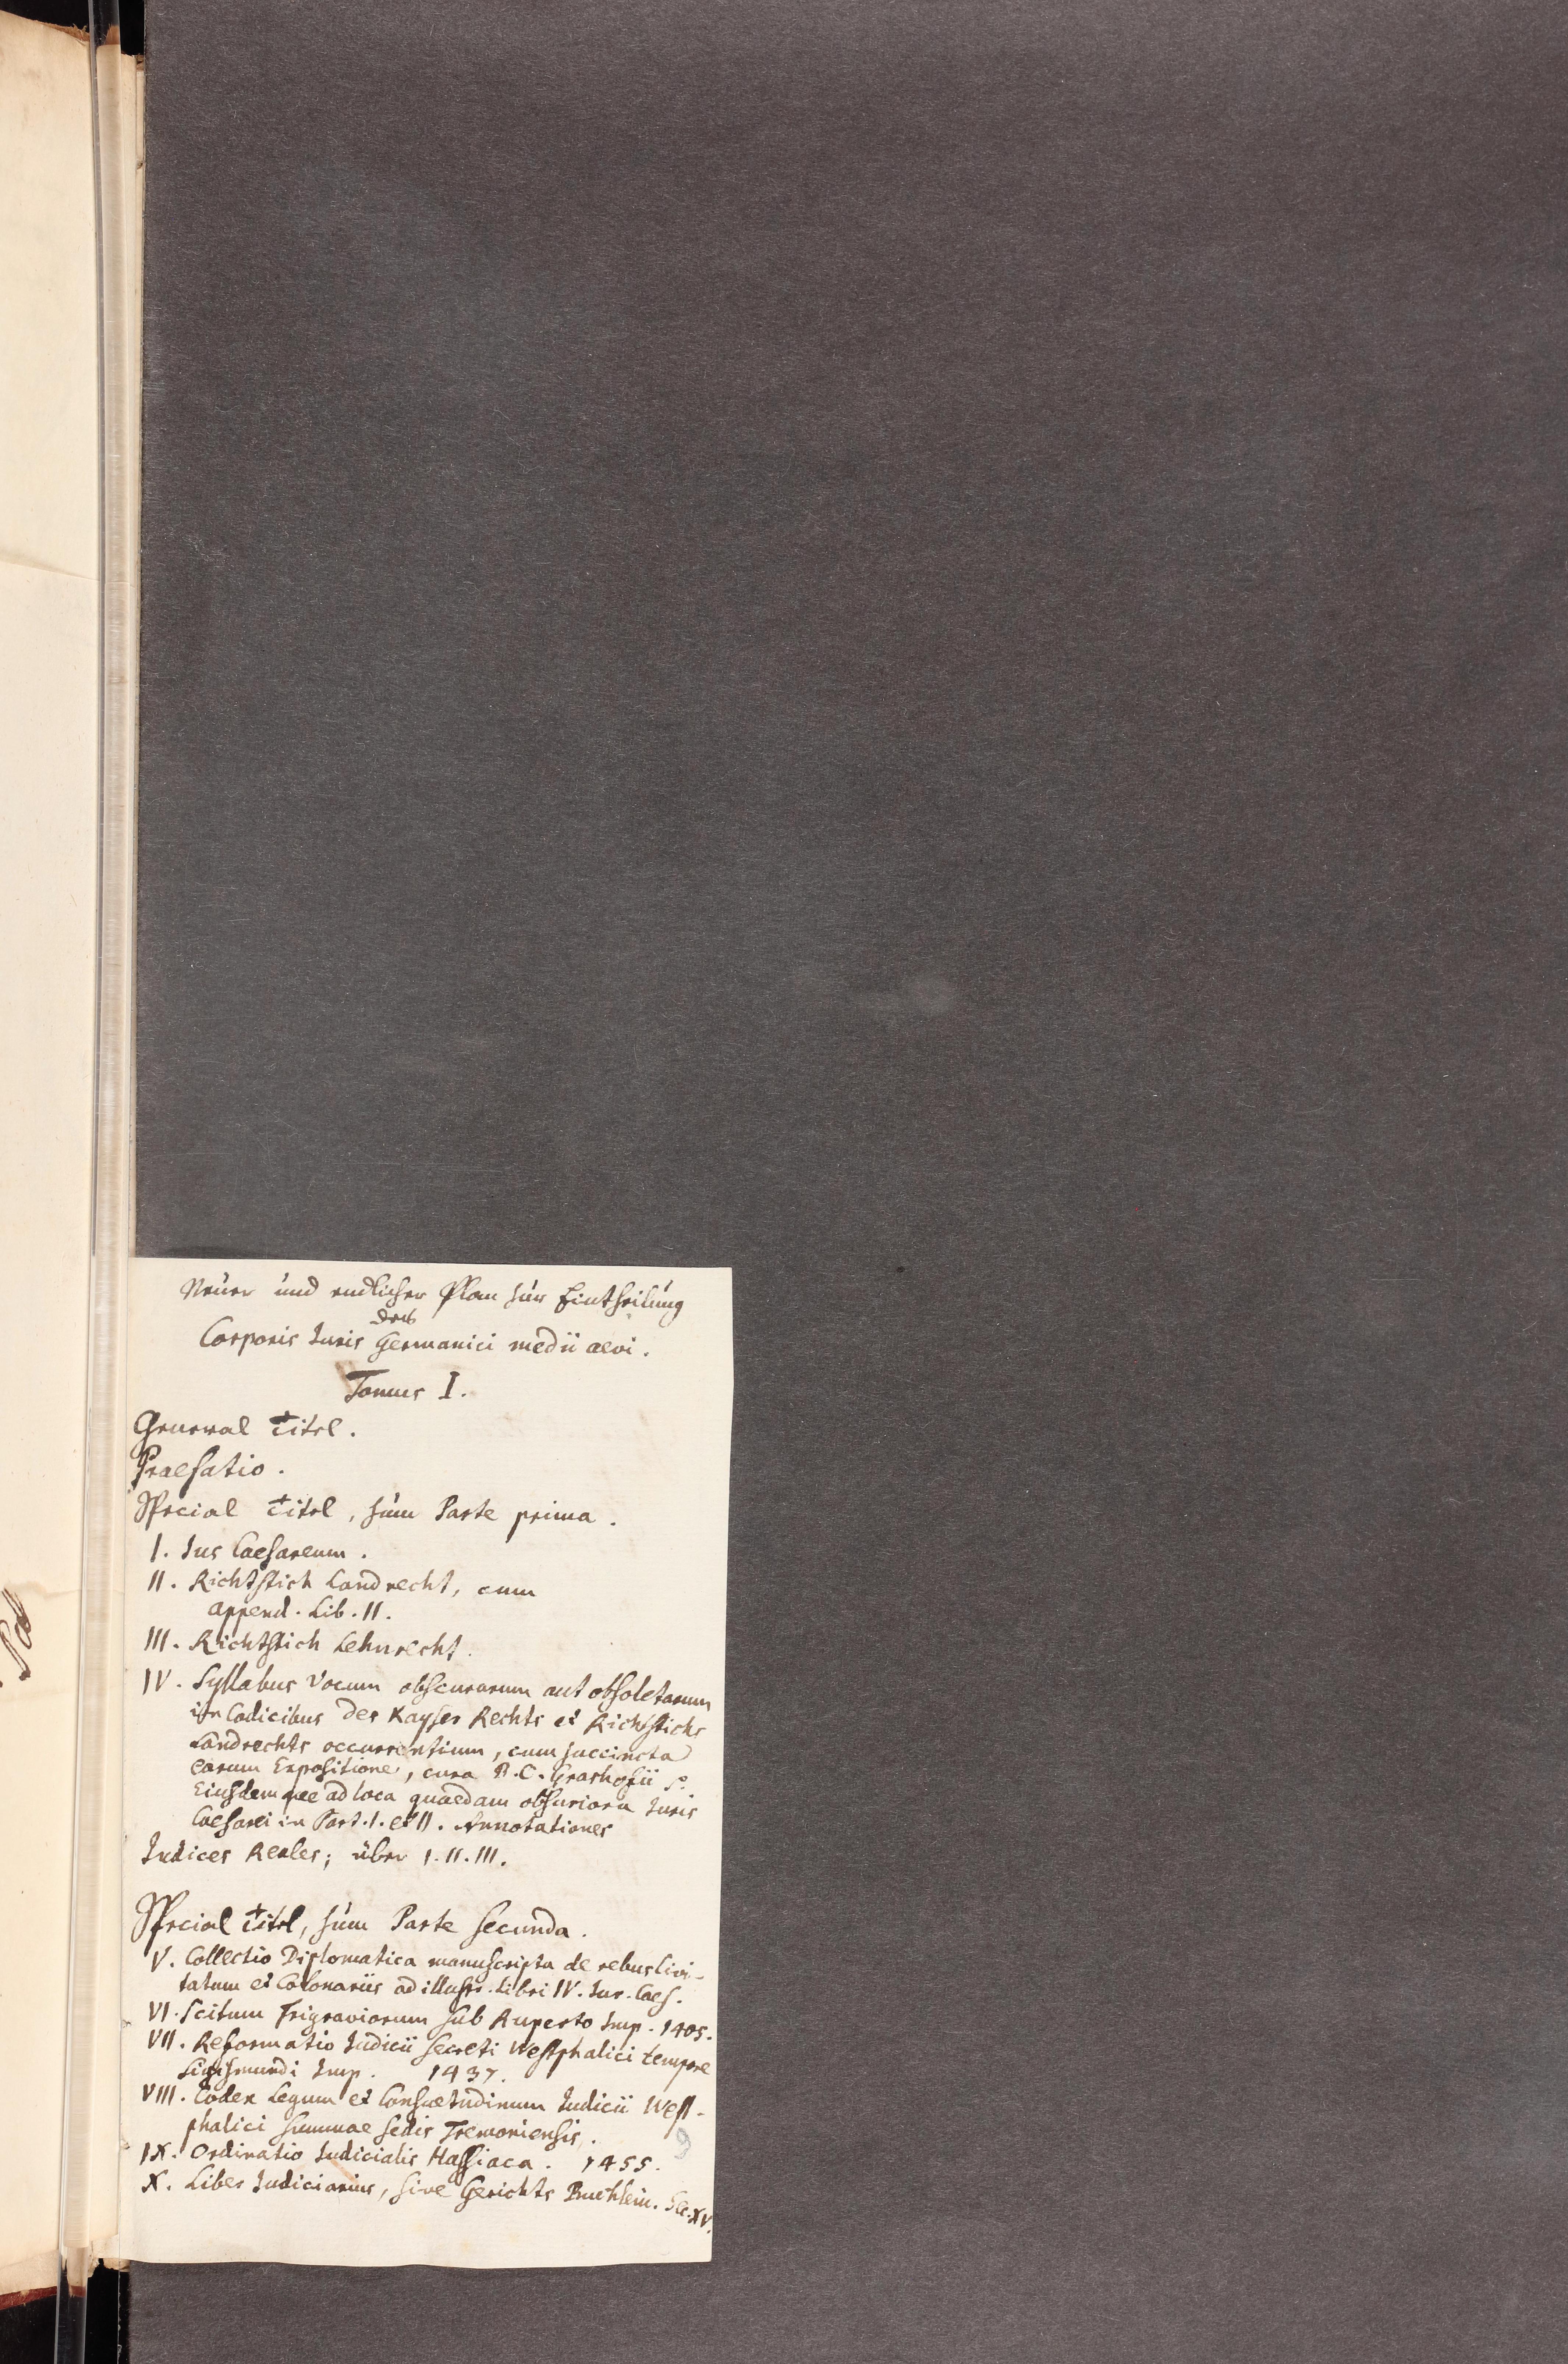 Neuer und endlicher Plan zur Eintheilung
des
Corporis Iuris Germanici medii aevi.
Tomus I.
General Titel.
Praefatio.
Special Titel, zum Parte prima.
I. Ius Caesareum.
II. Richtstich Landrecht, cum
append. Lib. II.
III. Richtstich Lehnrecht.
IV. Syllabus Vocum obscurarum aut obsoletarum
in Codicibus des Kayser Rechts et Richtstichs
Landrechts occurrentium, cum succincta
earum Expositione, cura B. C. Grashofii
Eiusdemque ad loca quaedam obscuriora Iuris
Caesarei in Part. I. et II. Annotationes
Indices Reales; über I. II. III.
Special Titel, zum Parte secunda.
V. Collectio Diplomatica manuscripta de rebus Civi-
tatum et Colonariis ad illustr. Libri IV. Iur. Caes.
VI. Scitum Frigraviorum sub Ruperto Imp. 1405.
VII. Reformatio Iudicii Secreti Westphalici tempore
Sigismundi Imp. 1437.
VIII. Codex Legum et Consuetudinum Iudicii West-
phalici summae sedis Tremoniensis.
9
IX. Ordinatio Iudicialis Hassiaca. 1455.
X. Liber Iudiciarius, sive Gerichts Buchlein. Sec. XV.